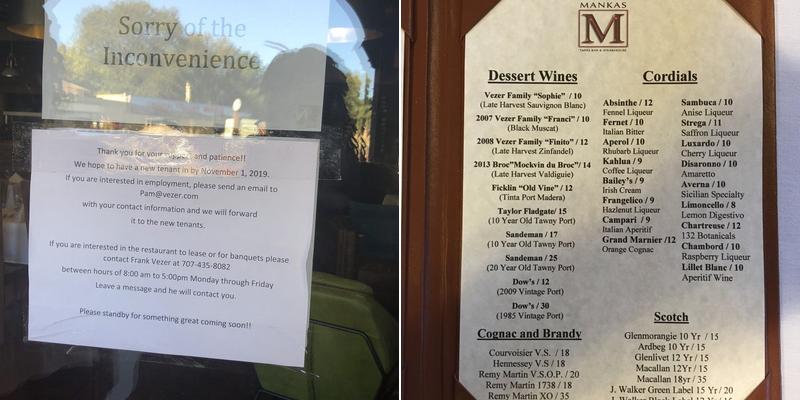 Sorry of the
Inconvenience
Thank you for your support and patience!!
We hope to have a new tenant in by November 1, 2019.
If you are interested in employment, please send an email to
Pam@vezer.com
with your contact information and we will forward
it to the new tenants.
If you are interested in the restaurant to lease or for banquets please
contact Frank Vezer at 707-435-8082
between hours of 8:00 am to 5:00pm Monday through Friday
Leave a message and he will contact you.
Please standby for something great coming soon!!
MANKAS
M
TAPAS BAR & STEAKHOUSE
Dessert Wines
Vezer Family "Sophie" / 10
(Late Harvest Sauvignon Blanc)
2007 Vezer Family "Franci" / 10
(Black Muscat)
2008 Vezer Family "Finito" / 12
(Late Harvest Zinfandel)
2013 Broc"Mockvin du Broc"/ 14
(Late Harvest Valdiguie)
Ficklin "Old Vine" / 12
(Tinta Port Madera)
Taylor Fladgate/ 15
(10 Year Old Tawny Port)
Sandeman / 17
(10 Year Old Tawny Port)
Sandeman / 25
(20 Year Old Tawny Port)
Dow's / 12
(2009 Vintage Port)
Dow's / 30
(1985 Vintage Port)
Cognac and Brandy
Courvoisier V.S. / 18
Hennessey V.S / 18
Remy Martin V.S.O.P. / 20
Remy Martin 1738 / 18
Remy Martin XO / 35
Cordials
Absinthe / 12
Fennel Liqueur
Fernet / 10
Italian Bitter
Aperol / 10
Rhubarb Liqueur
Kahlua / 9
Coffee Liqueur
Bailey's / 9
Irish Cream
Frangelico / 9
Hazlenut Liqueur
Campari / 9
Italian Aperitif
Grand Marnier /12
Orange Cognac
Sambuca / 10
Anise Liqueur
Strega / 11
Saffron Liqueur
Luxardo / 10
Cherry Liqueur
Disaronno / 10
Amaretto
Averna / 10
Sicilian Specialty
Limoncello / 8
Lemon Digestivo
Chartreuse / 12
132 Botanicals
Chambord / 10
Raspberry Liqueur
Lillet Blanc / 10
Aperitif Wine
Scotch
Glenmorangie 10 Yr / 15
Ardbeg 10 Yr / 15
Glenlivet 12 Yr / 15
Macallan 12Yr / 15
Macallan 18yr / 35
J. Walker Green Label 15 Yr / 20